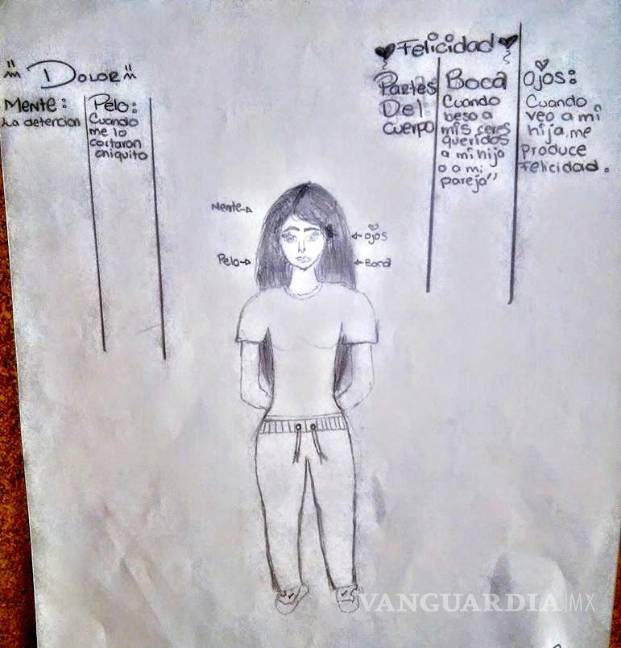 Dolor
Mente:
La detención
Pelo:
Cuando
me lo
cortaron
chiquito
Felicidad
Partes
Del
Cuerpo
Boca
Cuando
beso a
mis seres
queridos
a mi hija
o a mi
pareja"
Ojos:
Cuando
veo a mi
hija, me
Produce
Felicidad.
Mente
Pelo
Ojos
Boca
VANGUARDIA|MX